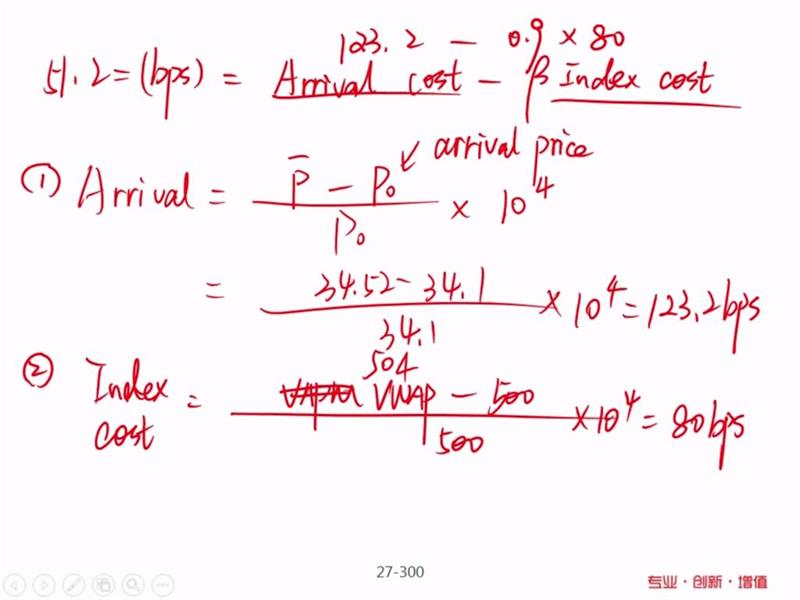 123.2 - 0.9 × 80
51.2 = (bps) = Arrival cost - β Index cost
① Arrival = (P̄ - P₀) / P₀ × 10⁴
arrival price
= (34.52 - 34.1) / 34.1 × 10⁴ = 123.2 bps
504
② Index cost = (VWAP - 500) / 500 × 10⁴ = 80 bps
27-300
专业·创新·增值